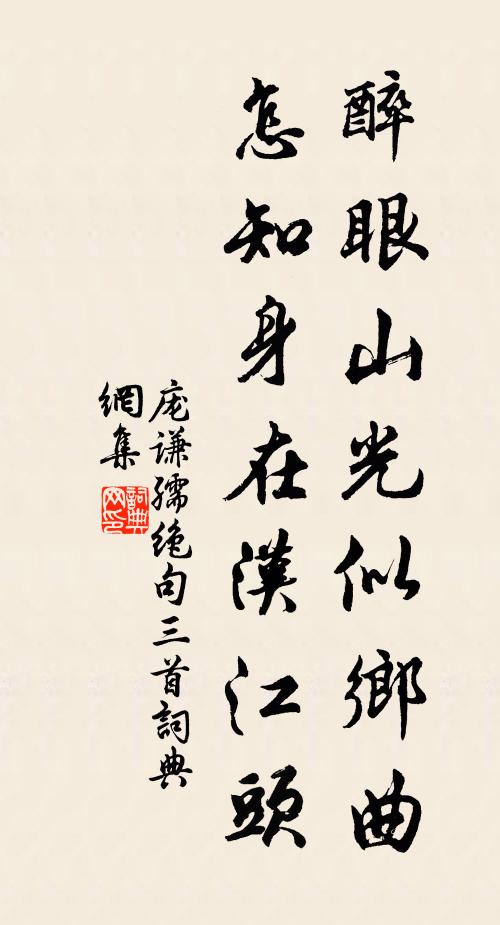 醉眼山光似鄉曲
怎知身在漢江頭
庞谦孺绝句三首詞典
網集
詞典
网印